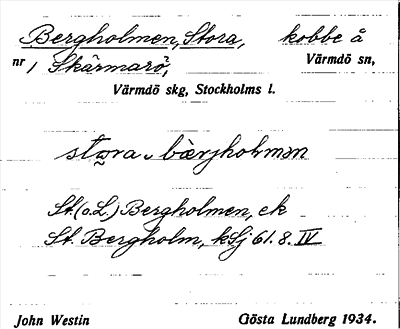 Bergholmen, Stora, kobbe å
nr 1 Skärmarö, Värmdö sn,
Värmdö skg, Stockholms l.
St. (o. L.) Bergholmen, ek
St. Bergholm, kSj 61. 8. IV
John Westin Gösta Lundberg 1934.